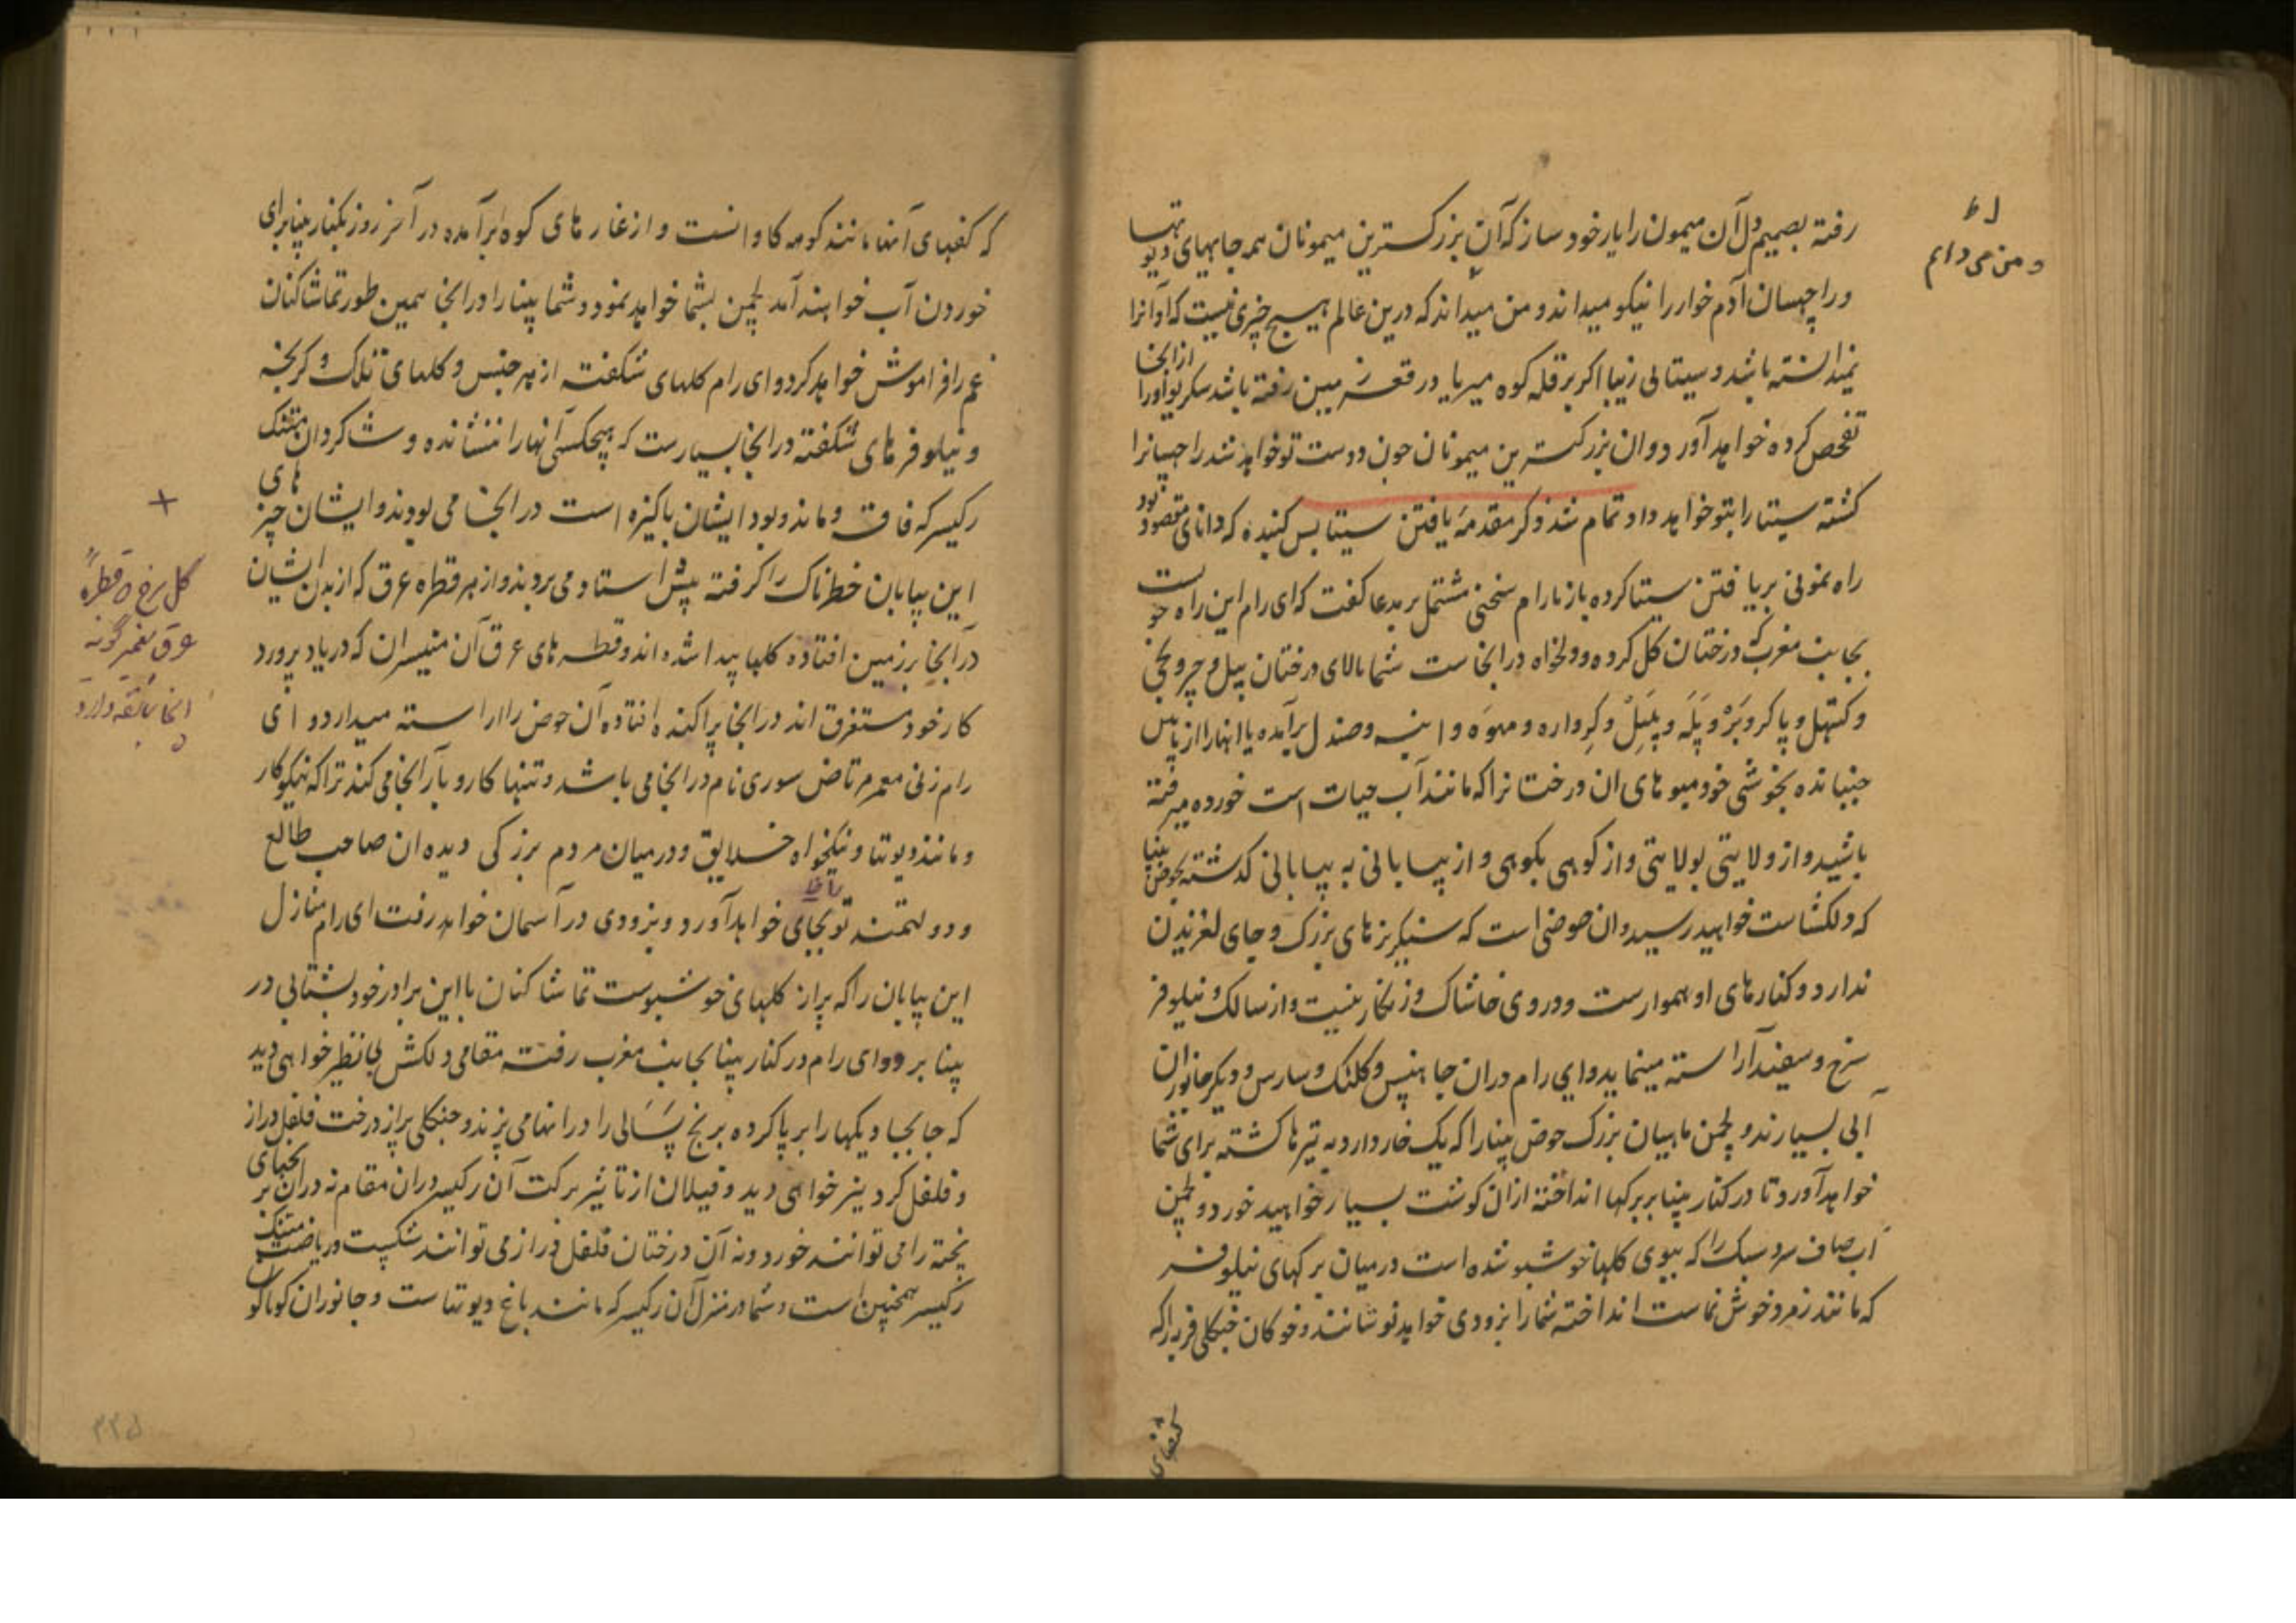 رفته بصمیم دل آن میمون را یار خود ساز که آن بزرکسترین میمونان همه جایهای دیوتها
و راچهسان آدم خوار را نیکو میداند و من میداند که درین عالم هیسج چیزی نیست که او آنرا
نمیدانسته باشد و سیتالی زیبا اکر بر قله کوه میر یا در قعر زمین رفته باشد سکریو او را از انجا
تفحص کرده خواهد آورد و ان بزرکسترین میمونان چون دوست تو خواهد شد راچسانرا
کشته سیتا را بتو خواهد داد تمام شد ذکر مقدمهٔ یافتن سیتا پس کبنده که دانای مقصود بود
راه نمونی بر یافتن سیتا کرده باز با رام سخنی مشتمل بر مدعا کفت که ای رام این راه خوبست
بجانب مغرب که درختان کل کرده و دلخواه در انجاست شما بالای درختان پیل و چرونجی
و کتهل و پاکر و بَرْ و پَلَه و پنپِلْ و کِرواره و مهوَه و انبه و صندل برآمده یا انها را از پایین
جنبانده بخوشی خود میوهای ان درختانرا که مانند آب حیات است خورده میرفته
باشید و از ولایتی بولایتی و از کوهی بکوهی و از بیابانی به بیابانی کدشته بحوض پنپا
که دلکشاست خواهید رسید و ان حوضی است که سنکریزهای بزرک و جای لغزیدن
ندارد و کنارهای او هموارست و در وی خاشاک و زنکار نیست و از سالک و نیلوفر
سرخ و سفید آراسته مینماید و ای رام دران جا هنس و کلنک و سارس و دیکر جانوران
آبی بسیارند و لچمن ماهیان بزرک حوض پنپا را که یک خار دارد به تیرها کشته برای شما
خواهد آورد تا در کنار پنپا بر برکها انداخته ازان کوشت بسیار خواهید خورد و لچمن
آب صاف سرد سبک را که ببوی کلها خوشبو شده است در میان برکهای نیلوفر
که مانند زمرد خوش نماست انداخته شما را بزودی خواهد نوشانند و خوکان جنکلی فربه را که
و من می دانم
که کفهای آنها مانند کوهه کاوانست و از غارهای کوه برآمده در آخر روز بکنار پنپا برای
خوردن آب خواهند آمد لچمن بشما خواهد نمود و شما پنپا را در انجا همین طور تماشاکنان
غم را فراموش خواهد کرد و ای رام کلهای شکفته از هر جنس و کلهای تلک و کرنجه
و نیلوفرهای شکفته در انجا بسیارست که هیچکس آنها را ننشانده و شاکردان متنک
رکیسر که فاقه و ماند و بود ایشان پاکیزه است در انجا می بودند و ایشان چیزهای
این بیابان خطرناک را کرفته پیش استاد می بردند و از هر قطره عرق که از بدن ایشان
در آنجا بر زمین افتاده کلها پیدا شده اند و قطرهای عرق آن منیسران که در یاد پرورد
کار خود مستغرق اند در انجا پراکنده افتاده آن حوض را اراسته میدارد و ای
رام زنی معمر مرتاض سوری نام در انجا می باشد و تنها کار و بار آنجا می کند ترا که نیکو کار
و مانند دیوتها و نیکخواه خلایق و در میان مردم بزرکی دیده ان صاحب طالع
و دولتمند تو بجای خواهد آورد و بزودی در آسمان خواهد رفت ای رام منازل
این بیابان را که پر از کلهای خوشبوست تماشاکنان با این برادر خود بشتابی در
پنپا برو و ای رام در کنار پنپا بجانب مغرب رفته مقامی دلکش بی نظیر خواهی دید
که جابجا دیکها را برپا کرده برنج پَسَالی را در انها می پزند و جنکلی پر از درخت فلفل دراز
و فلفل کرد نیز خواهی دید و فیلان از تاثیر برکت آن رکیسر دران مقام نه دران برنجهای
پخته را می توانند خورد و نه آن درختان فلفل دراز می توانند شکست و ریاضت متنک
رکیسر همچنین است و شما در منزل آن رکیسر که مانند باغ دیوتهاست و جانوران کوناکون
کل سرخ و قطرهٔ